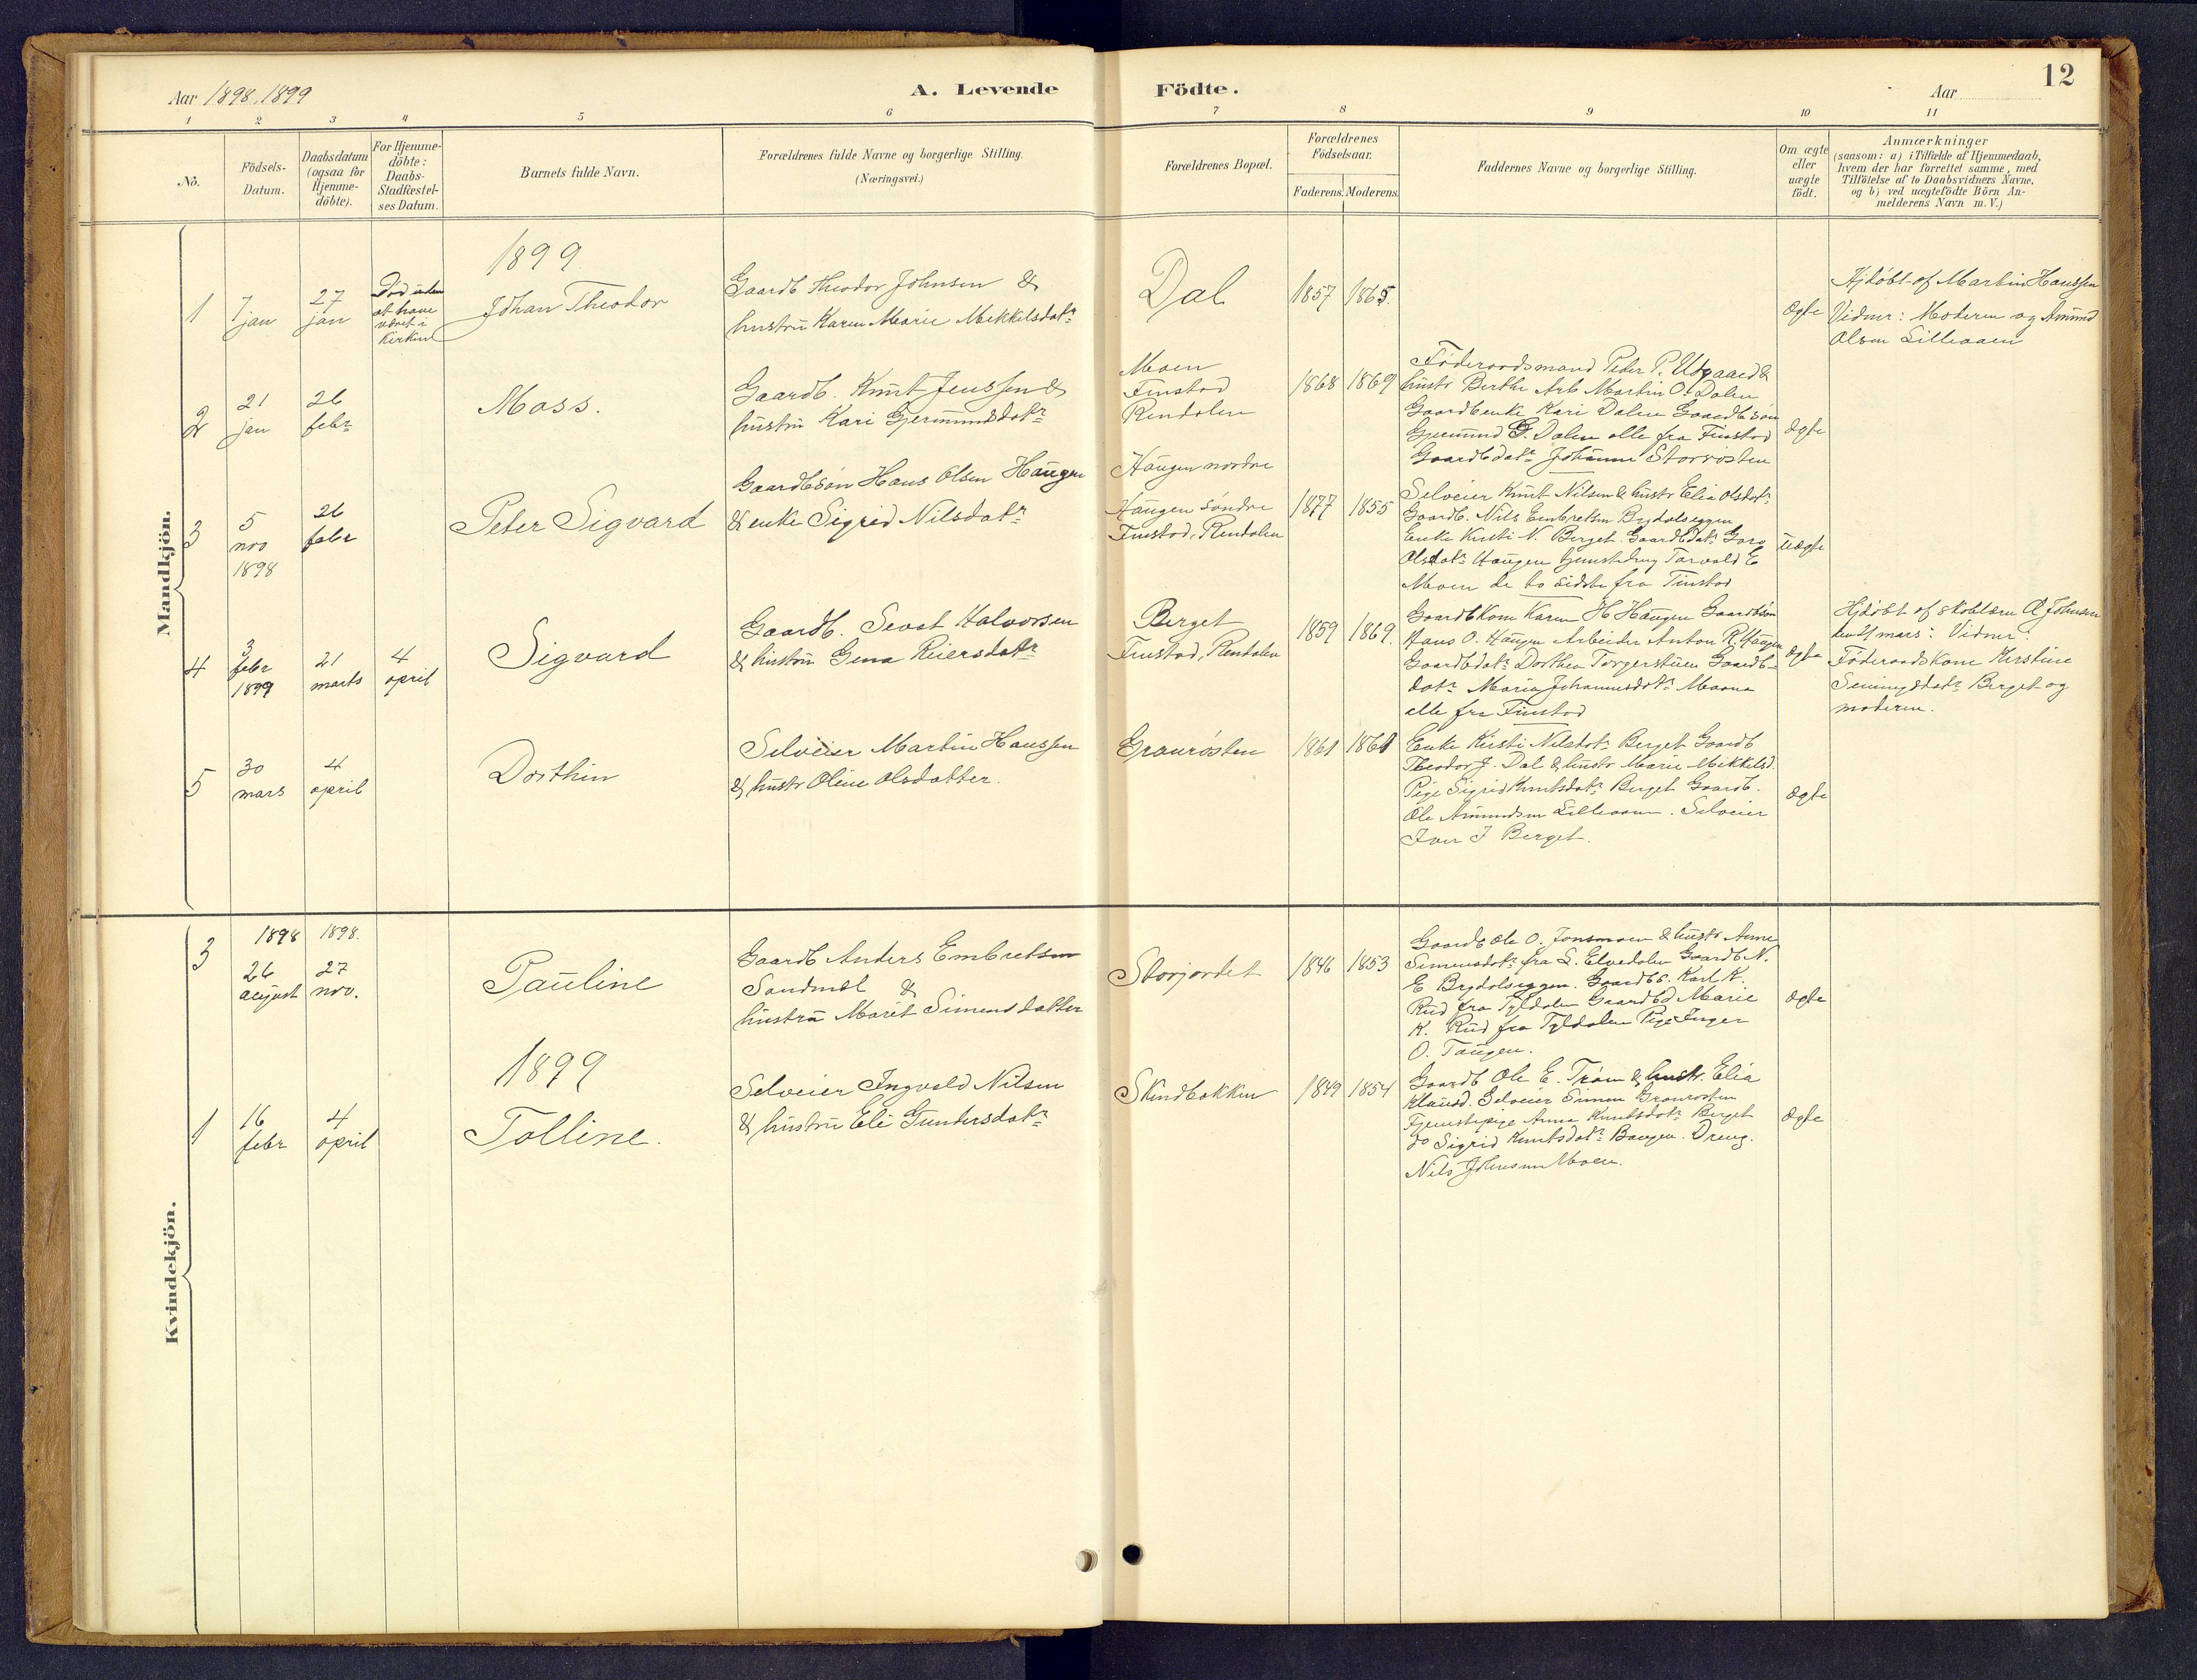 Aar 1898, 1899
A. Levende
Födte.
Aar
12
1
2
3
4
5
6
7
8
9
10
11
No.
Födsels-
Datum.
Daabsdatum
(ogsaa for
Hjemme-
döbte).
For Hjemme-
döbte:
Daabs-
Stadfæstel-
ses Datum.
Barnets fulde Navn.
Forældrenes fulde Navne og borgerlige Stilling.
(Næringsvei.)
Forældrenes Bopæl.
Forældrenes
Födselsaar.
Faderens. Moderens.
Faddernes Navne og borgerlige Stilling.
Om ægte
eller
uægte
födt.
Anmærkninger
(saasom: a) i Tilfælde af Hjemmedaab,
hvem der har forrettet samme, med
Tilföielse af to Daabsvidners Navne,
og b) ved uægtefödte Börn An-
melderens Navn m. V.)
Mandkjön.
1899
1
7
jan
27
jan
Död uden
at have
været i
Kirken
Johan Theodor
Gaardb Theodor Johnsen &
hustru Karen Marie Mikkelsdatr
Dal
1857
1865.
ægte
Hjdöbt af Martin Hanssen
Vidner: Moderen og Amund
Olsen Lilleaaen
2
21
jan
26
febr
Mass.
Gaardb. Knut Jenssen &
hustru Kari Gjermundsdatr
Moen
Finstad
Rendalen
1868
1869
Föderaadsmand Peder P. Utgaard &
hustr Berthe Arb Martin O. Dalen
Gaardbenke Kari Dalen Gaardbsön
Gjermund G. Dalen alle fra Finstad
Gaardbdatr Johanne Storrösten
ægte
3
5
nov
1898
26
febr
Peter Sigvard
Gaardbsön Hans Olsen Haugen
& enke Sigrid Nilsdatr
Haugen nordre
Haugen söndre
Finstad, Rendalen
1877
1855
Selveier Knut Nilsen & hustr Elia Olsdatr
Gaardb. Nils Embretsen Brydalseggen
Enke Kirsti N. Berget. Gaardbdatr Goro
Olsdatr Haugen Tarvald E
Moen de to sidste fra Finstad
uægte
4
3
febr
1899
21
marts
4
april
Sigvard
Gaardb. Sevat Halvorsen
& hustru Gina Reiersdatr
Berget
Finstad, Rendalen
1859
1869.
Gaardbkone Karen H Haugen Gaardbsön
Hans O. Haugen Arbeider Anton R. Haugen
Gaardbdatr Dorthea Torgerstuen Gaardb-
datr Maria Johannesdatr Moana
alle fra Finstad
ægte
Hjdöbt af skolelærer O Johnsen
den 21 mars: Vidner:
Föderaadskone Kirstine
Berget og
moderen.
5
30
mars
4
april
Dorthin
Selveier Martin Hanssen
& hustr Oline Olsdatter.
Granrösten
1861
1861
Enke Kirsti Nilsdatr Berget Gaardb
Theodor J. Dal & hustr Marie Mikkelsd.
Pige Sigrid Knutsdatr Berget Gaardb.
Ole Amundsen Lilleaaen. Selveier
Iver J Berget.
ægte
Kvindekjön.
3
1898
26
august
1898.
27
nov.
Pauline
Gaardb Anders Embretsen
Sandmæl &
hustru Marit Simensdatter
Storjordet
1846
1853
Gaardb Ole O. Jonsmoen & hustr Anne
Simensdatr fra L. Elvedalen Gaardb N.
E Brydalseggen. Gaardbs. Karl K.
Rud fra Tyldalen Gaardbd Marie
K. Rud fra Tyldalen Pige Inger
O. Taugen.
ægte
1899
1
16
febr
4
april
Tolline.
Selveier Ingvald Nilsen
& hustru Eli Guntersdatr
Skindbakken
1849
1854
Gaardb Ole E. Tröen & hustr. Elia
Klausd. Selveier Simen Granrösten
Tjenestepige Anna Knutsdatr Berget
do Sigrid Knutsdatr Baugen. Dreng.
Nils Johnsen Moen.
ægte